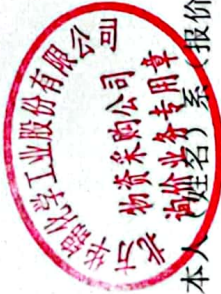 北方华锦化学工业股份有限公司
物资采购公司
询价业务专用章
本人（姓名）系（报价